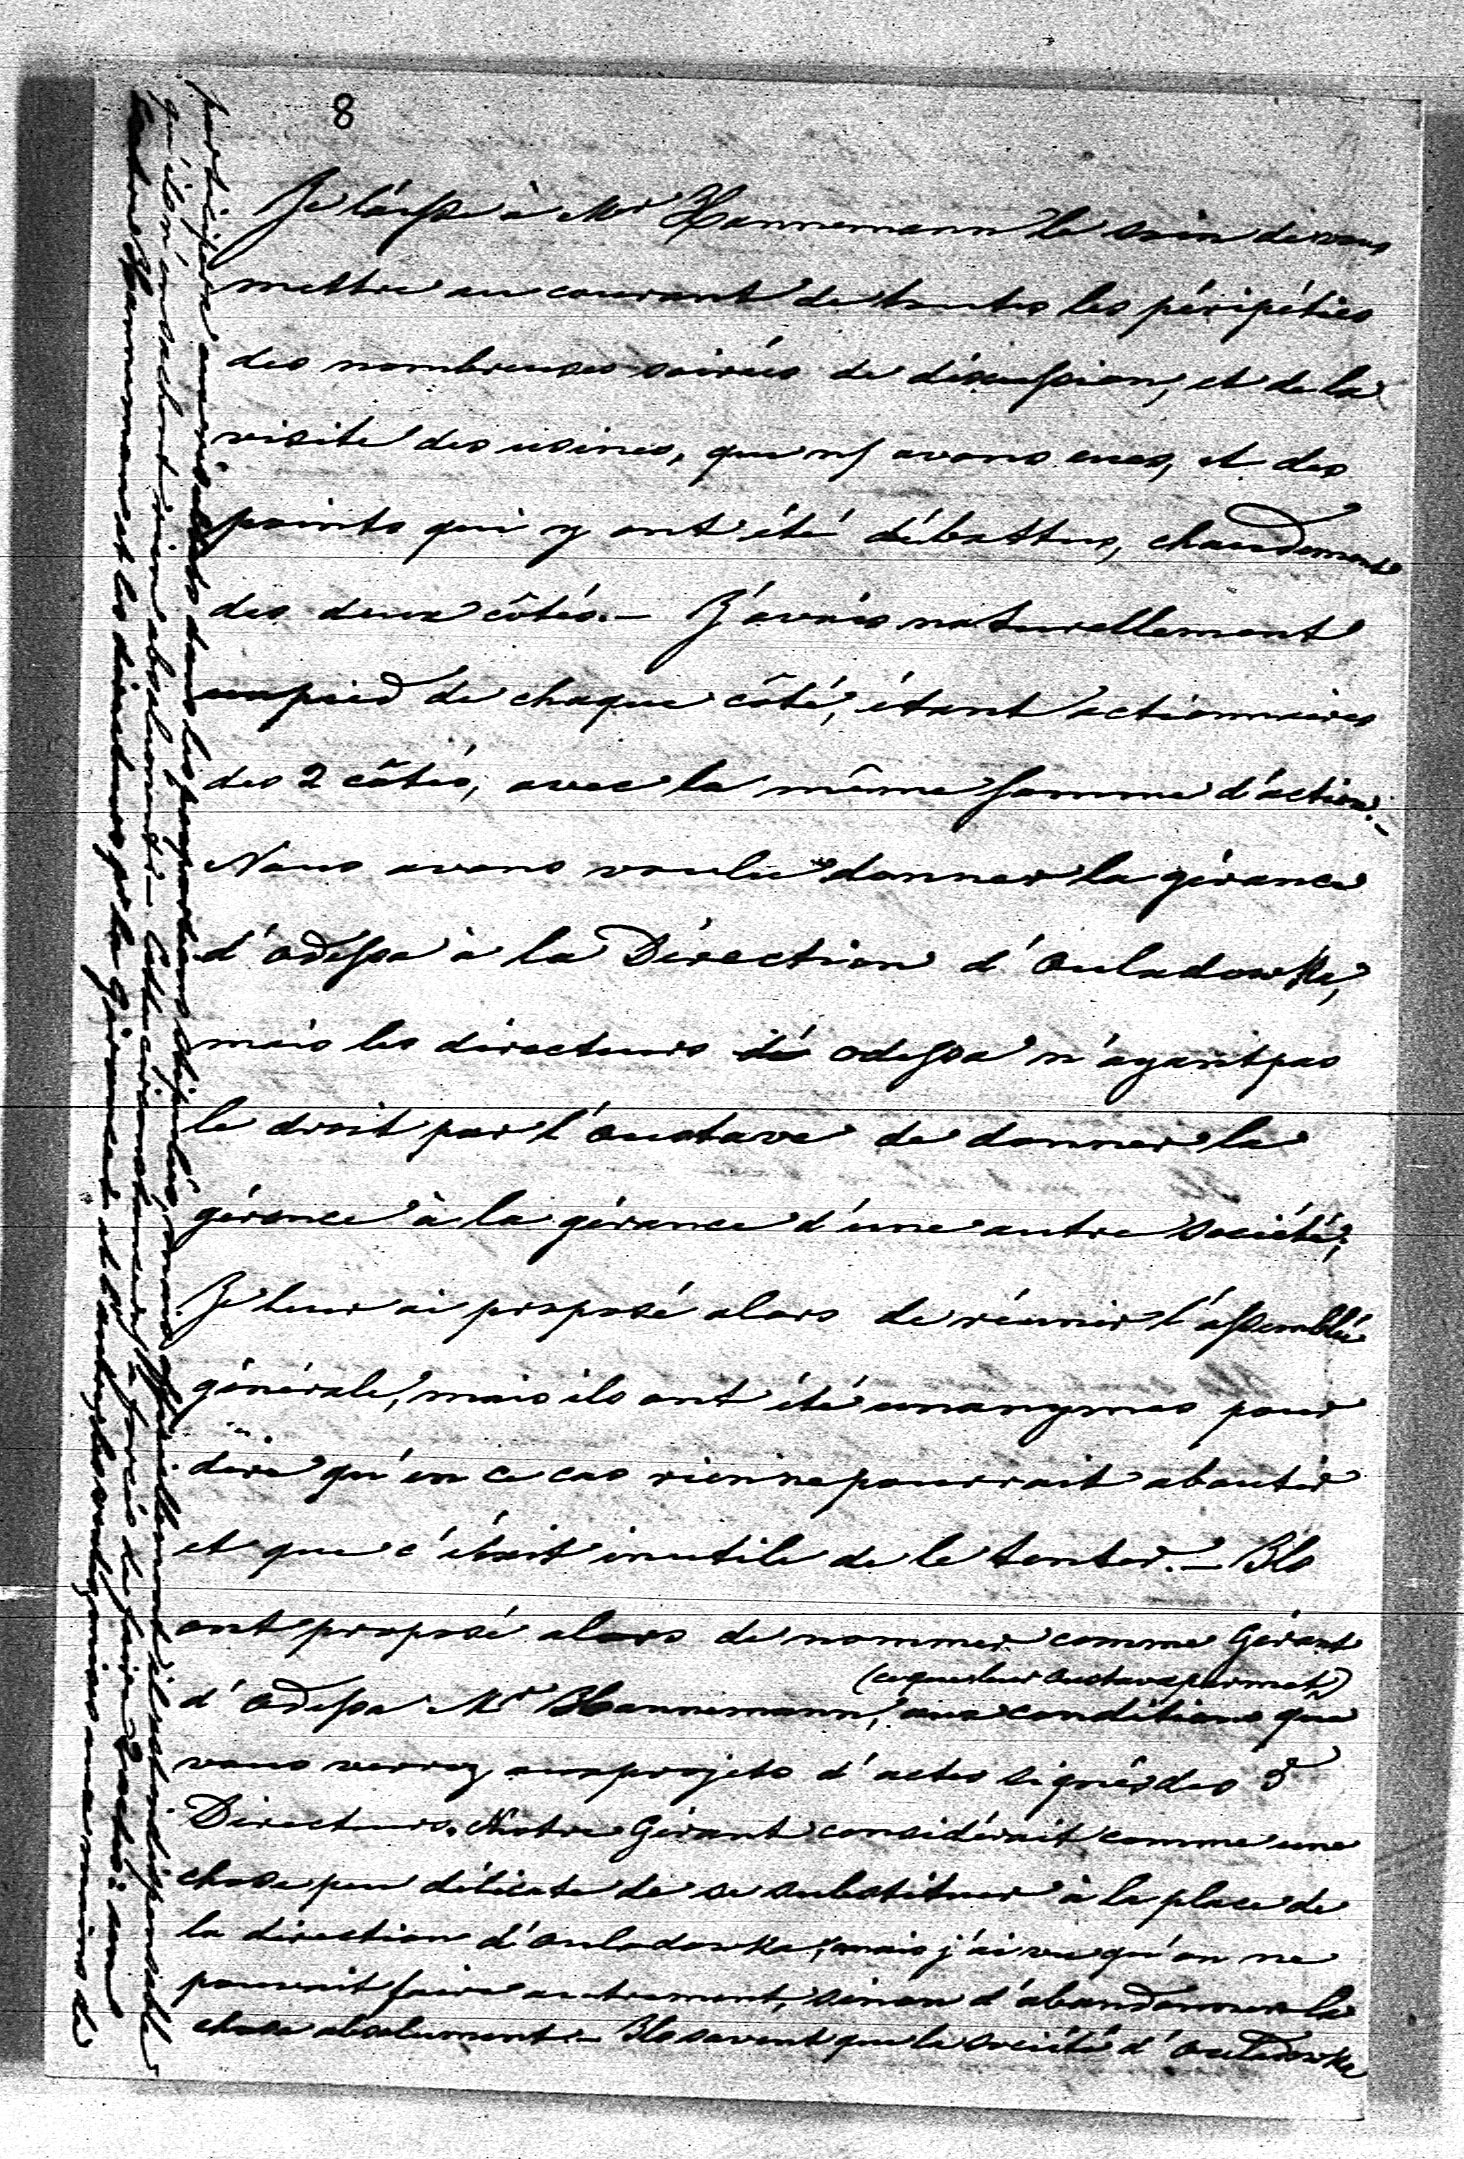 8
Je laisse à Mr Hannemann le soin de vous
mettre au courant de toutes les péripéties
des nombreuses soirées de discussion, et de la
visite des usines, que ns avons eues, et des
points qui y ont été débattus, chaudement
des deux côtés. – J'avais naturellement
un pied de chaque côté, étant actionnaires
des 2 côtés, avec la même somme d'action. –
Nous avons voulu donner la gérance
d'Odessa à la Direction d'Ouladowka,
mais les directeurs de Odessa n'ayant pas
le droit par l'Oustave de donner la
gérance à la gérance d'une autre société,
Je leur ai proposé alors de réunir l'assemblée
générale, mais ils ont été unanymes pour
dire qu'en ce cas rien ne pourrait aboutir
et que c'était inutile de le tenter. – Ils
ont proposé alors de nommer comme Gérant
(ce que leur Oustave permet)
d'Odessa Mr Hannemann, aux conditions que
vous verrez aux projets d'actes signés des 3
Directeurs. Notre Gérant considérait comme une
chose peu délicate de se substituer à la place de
la direction d'Ouladowka, mais j'ai vu qu'on ne
pouvait faire autrement, sinon d'abandonner la
chose absolument. – Ils savent que la société d'Ouladowka
participera aux dans les proportions stipulées, mais il est indispensable
qu'ils n'en sachent rien absolument – Cette circonstance, a forcé de faire 2 actes: un
entre Hannemann et les directeurs pr la Gérance et l'autre